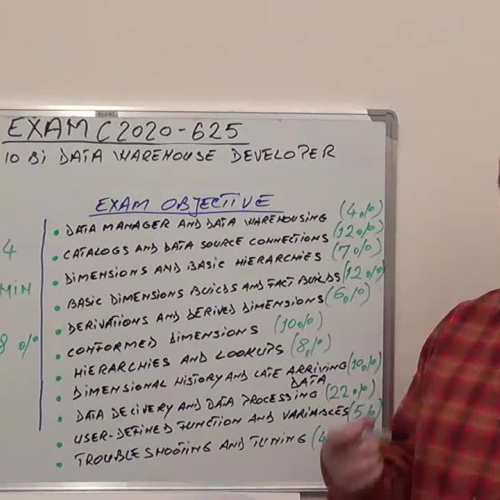 EXAM C2020-625
10 Bi DATA WAREHOUSE DEVELOPER
EXAM OBJECTIVE
• DATA MANAGER AND DATA WAREHOUSING (4%)
• CATALOGS AND DATA SOURCE CONNECTIONS (12%)
• DIMENSIONS AND BASIC HIERARCHIES (7%)
• BASIC DIMENSIONS BUILDS AND FACT BUILDS (12%)
• DERIVATIONS AND DERIVED DIMENSIONS (6%)
• CONFORMED DIMENSIONS (10%)
• HIERARCHIES AND LOOKUPS (8%)
• DIMENSIONAL HISTORY AND LATE ARRIVING DATA (10%)
• DATA DELIVERY AND DATA PROCESSING (22%)
• USER-DEFINED FUNCTION AND VARIABLES (5%)
• TROUBLE SHOOTING AND TUNING (4
4
MIN
8 %